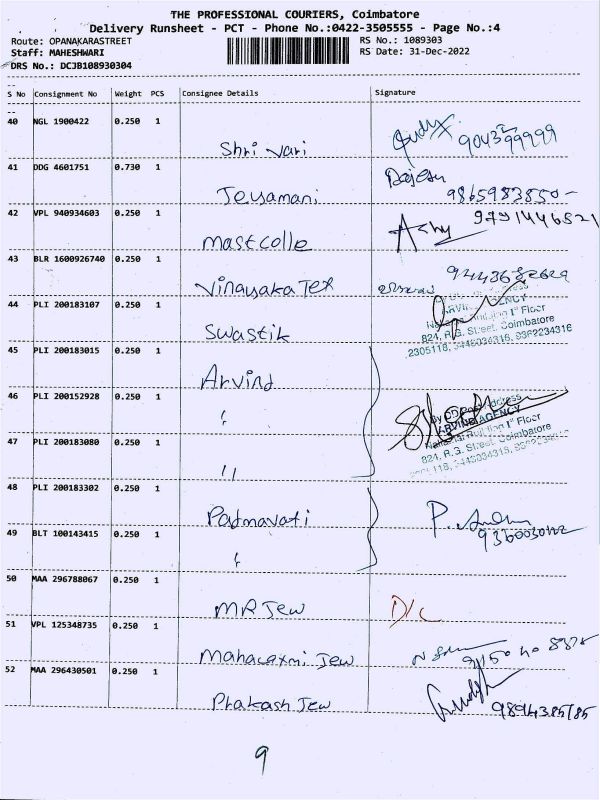 THE PROFESSIONAL COURIERS, Coimbatore
Delivery Runsheet - PCT - Phone No.:0422-3505555 - Page No.:4
Route: OPANAKARASTREET
RS No.: 1089303
Staff: MAHESHWARI
RS Date: 31-Dec-2022
DRS No.: DCJB108930304
S No Consignment No Weight PCS Consignee Details Signature
40 NGL 1900422 0.250 1
Shri vari
41 DDG 4601751 0.730 1
Jeyamani
9865983850-
42 VPL 940934603 0.250 1
9791446521
mastcolle
43 BLR 1600926740 0.250 1
Vinayaka Tex
44 PLI 200183107 0.250 1
Swastik
ARVIND AGENCY
824, R.G. Street, Coimbatore
45 PLI 200183015 0.250 1
Arvind
46 PLI 200152928 0.250 1
"
ARVIND AGENCY
47 PLI 200183080 0.250 1
824, R.G. Street, Coimbatore
"
48 PLI 200183302 0.250 1
Padmavati
49 BLT 100143415 0.250 1
"
50 MAA 296788067 0.250 1
MR Jew D/C
51 VPL 125348735 0.250 1
Mahalaxmi Jew
52 MAA 296430501 0.250 1
Prakash Jew
9